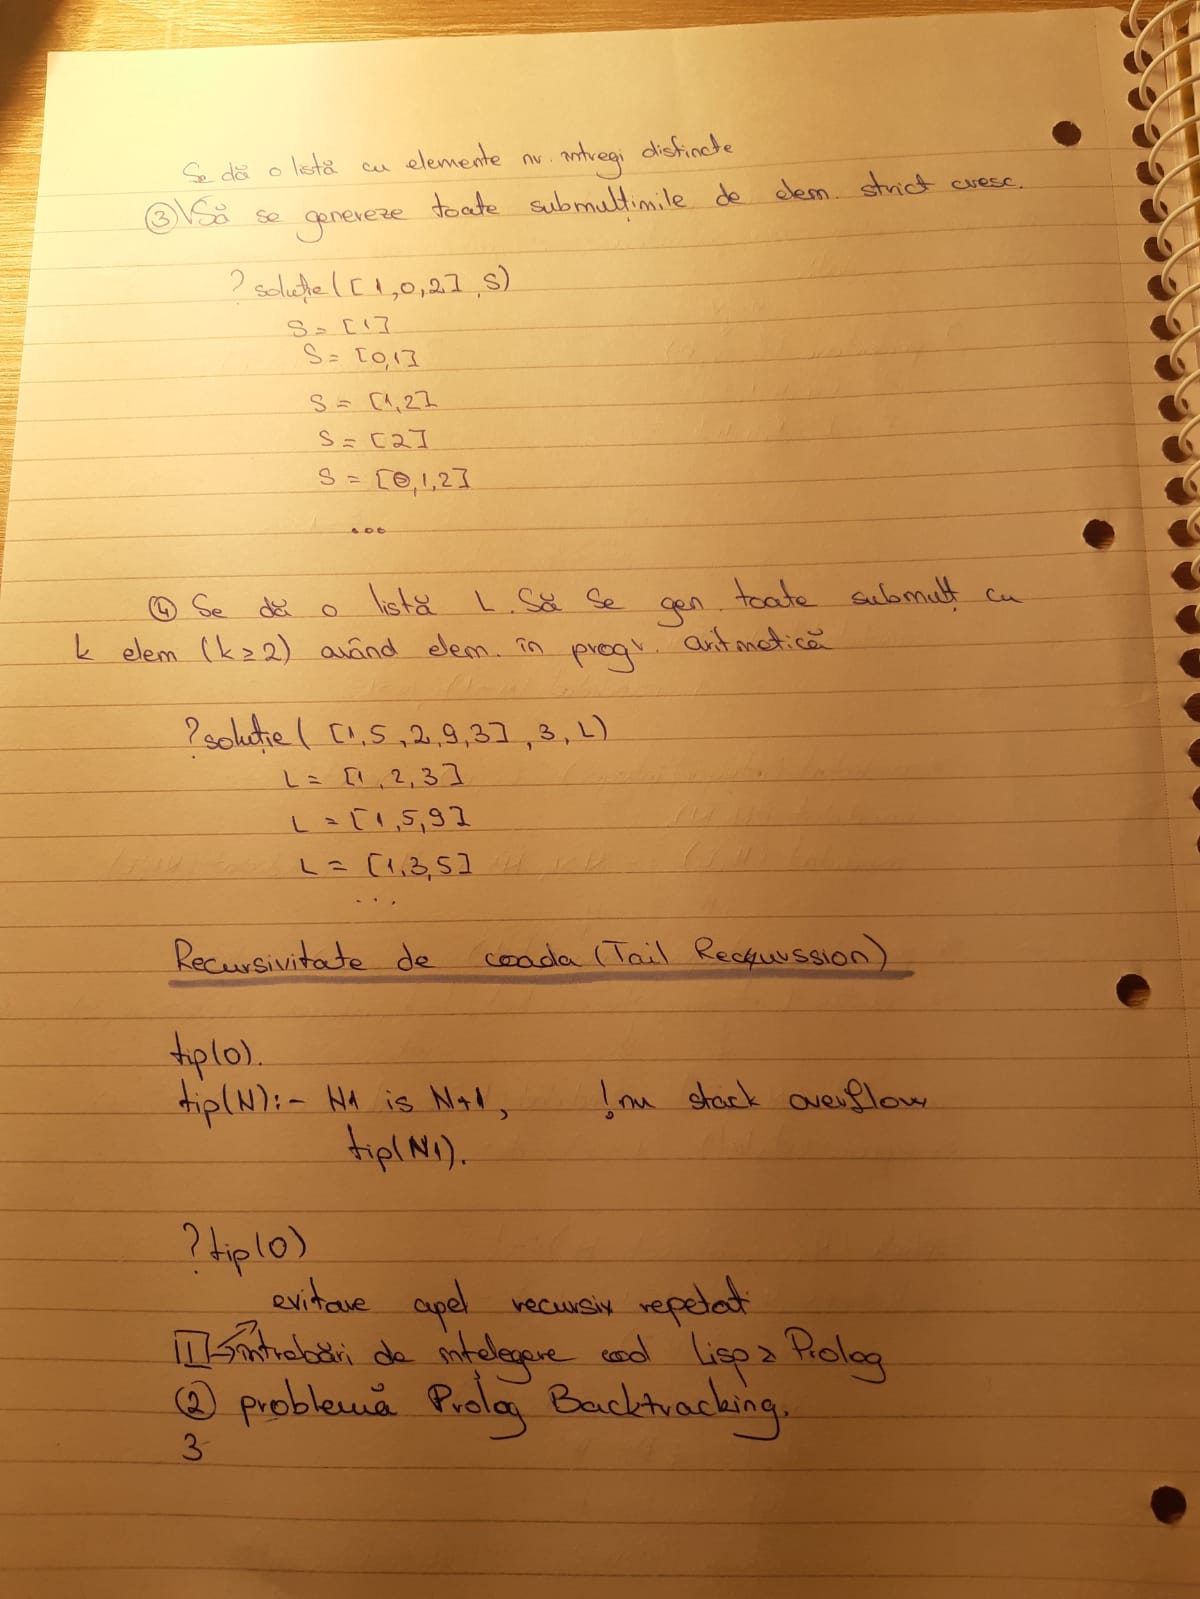 Se dă o listă cu elemente nr. întregi distincte
③ Să se genereze toate submulțimile de elem. strict cresc.
? soluție([1,0,2], S)
S= [1]
S= [0,1]
S = [1,2]
S= [2]
S = [0,1,2]
...
④ Se dă o listă L. Să se gen. toate submulț cu
k elem (k≥2) având elem. în progr. aritmetică
? soluție( [1,5,2,9,3], 3, L)
L= [1,2,3]
L = [1,5,9]
L = [1,3,5]
...
Recursivitate de coada (Tail Recurssion)
tip(0).
tip(N):- N1 is N+1, ! nu stack overflow
tip(N1).
? tip(0)
evitare apel recursiv repetat
1 întrebări de înțelegere cod Lisp Prolog
② problemă Prolog Backtracking.
3